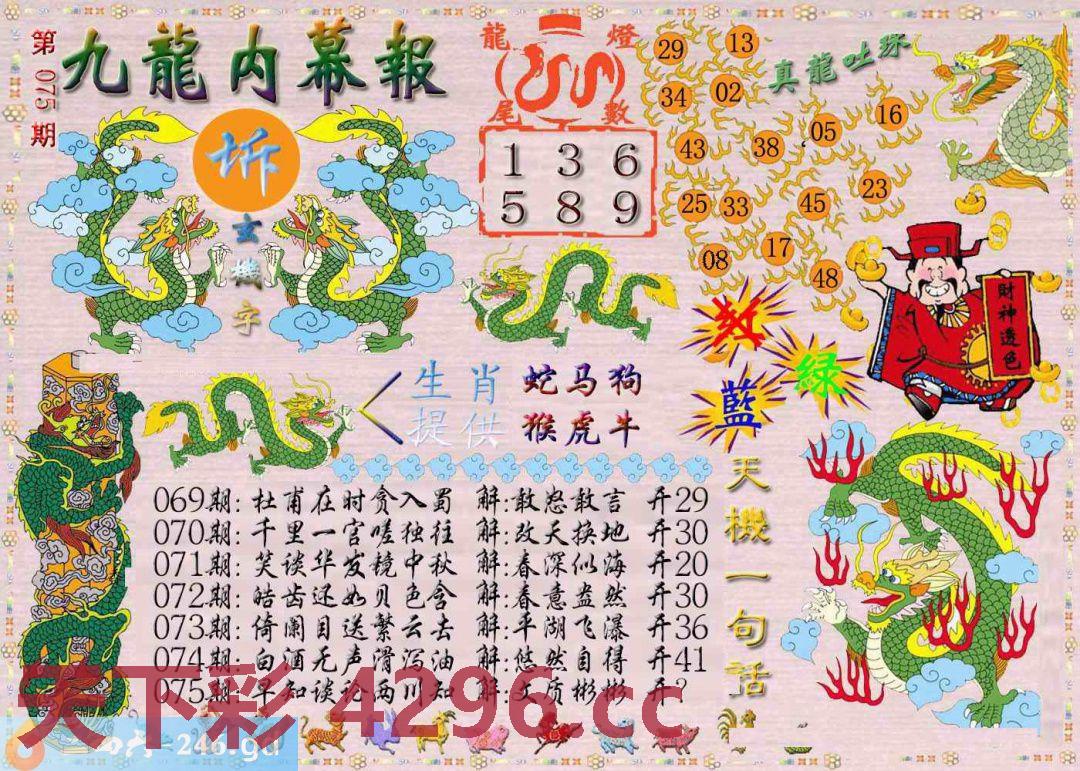 第075期
九龍内幕報
坼
玄機字
龍尾
燈數
1 3 6
5 8 9
29
13
34
02
真龍吐珠
16
05
43
38
25
33
45
23
08
17
48
紅
綠
藍
財神透色
生肖 蛇马狗
提供 猴虎牛
069期: 杜甫在时贪入蜀 解:敢怒敢言 开29
070期: 千里一官嗟独往 解:改天换地 开30
071期: 笑谈华发镜中秋 解:春深似海 开20
072期: 皓齿还如贝色含 解:春意盎然 开30
073期: 倚阑目送繁云去 解:平湖飞瀑 开36
074期: 白酒无声滑泻油 解:悠然自得 开41
075期: 早知谈论两川知 解:文质彬彬 开?
天機一句話
天下彩 4296.cc
=246.gd